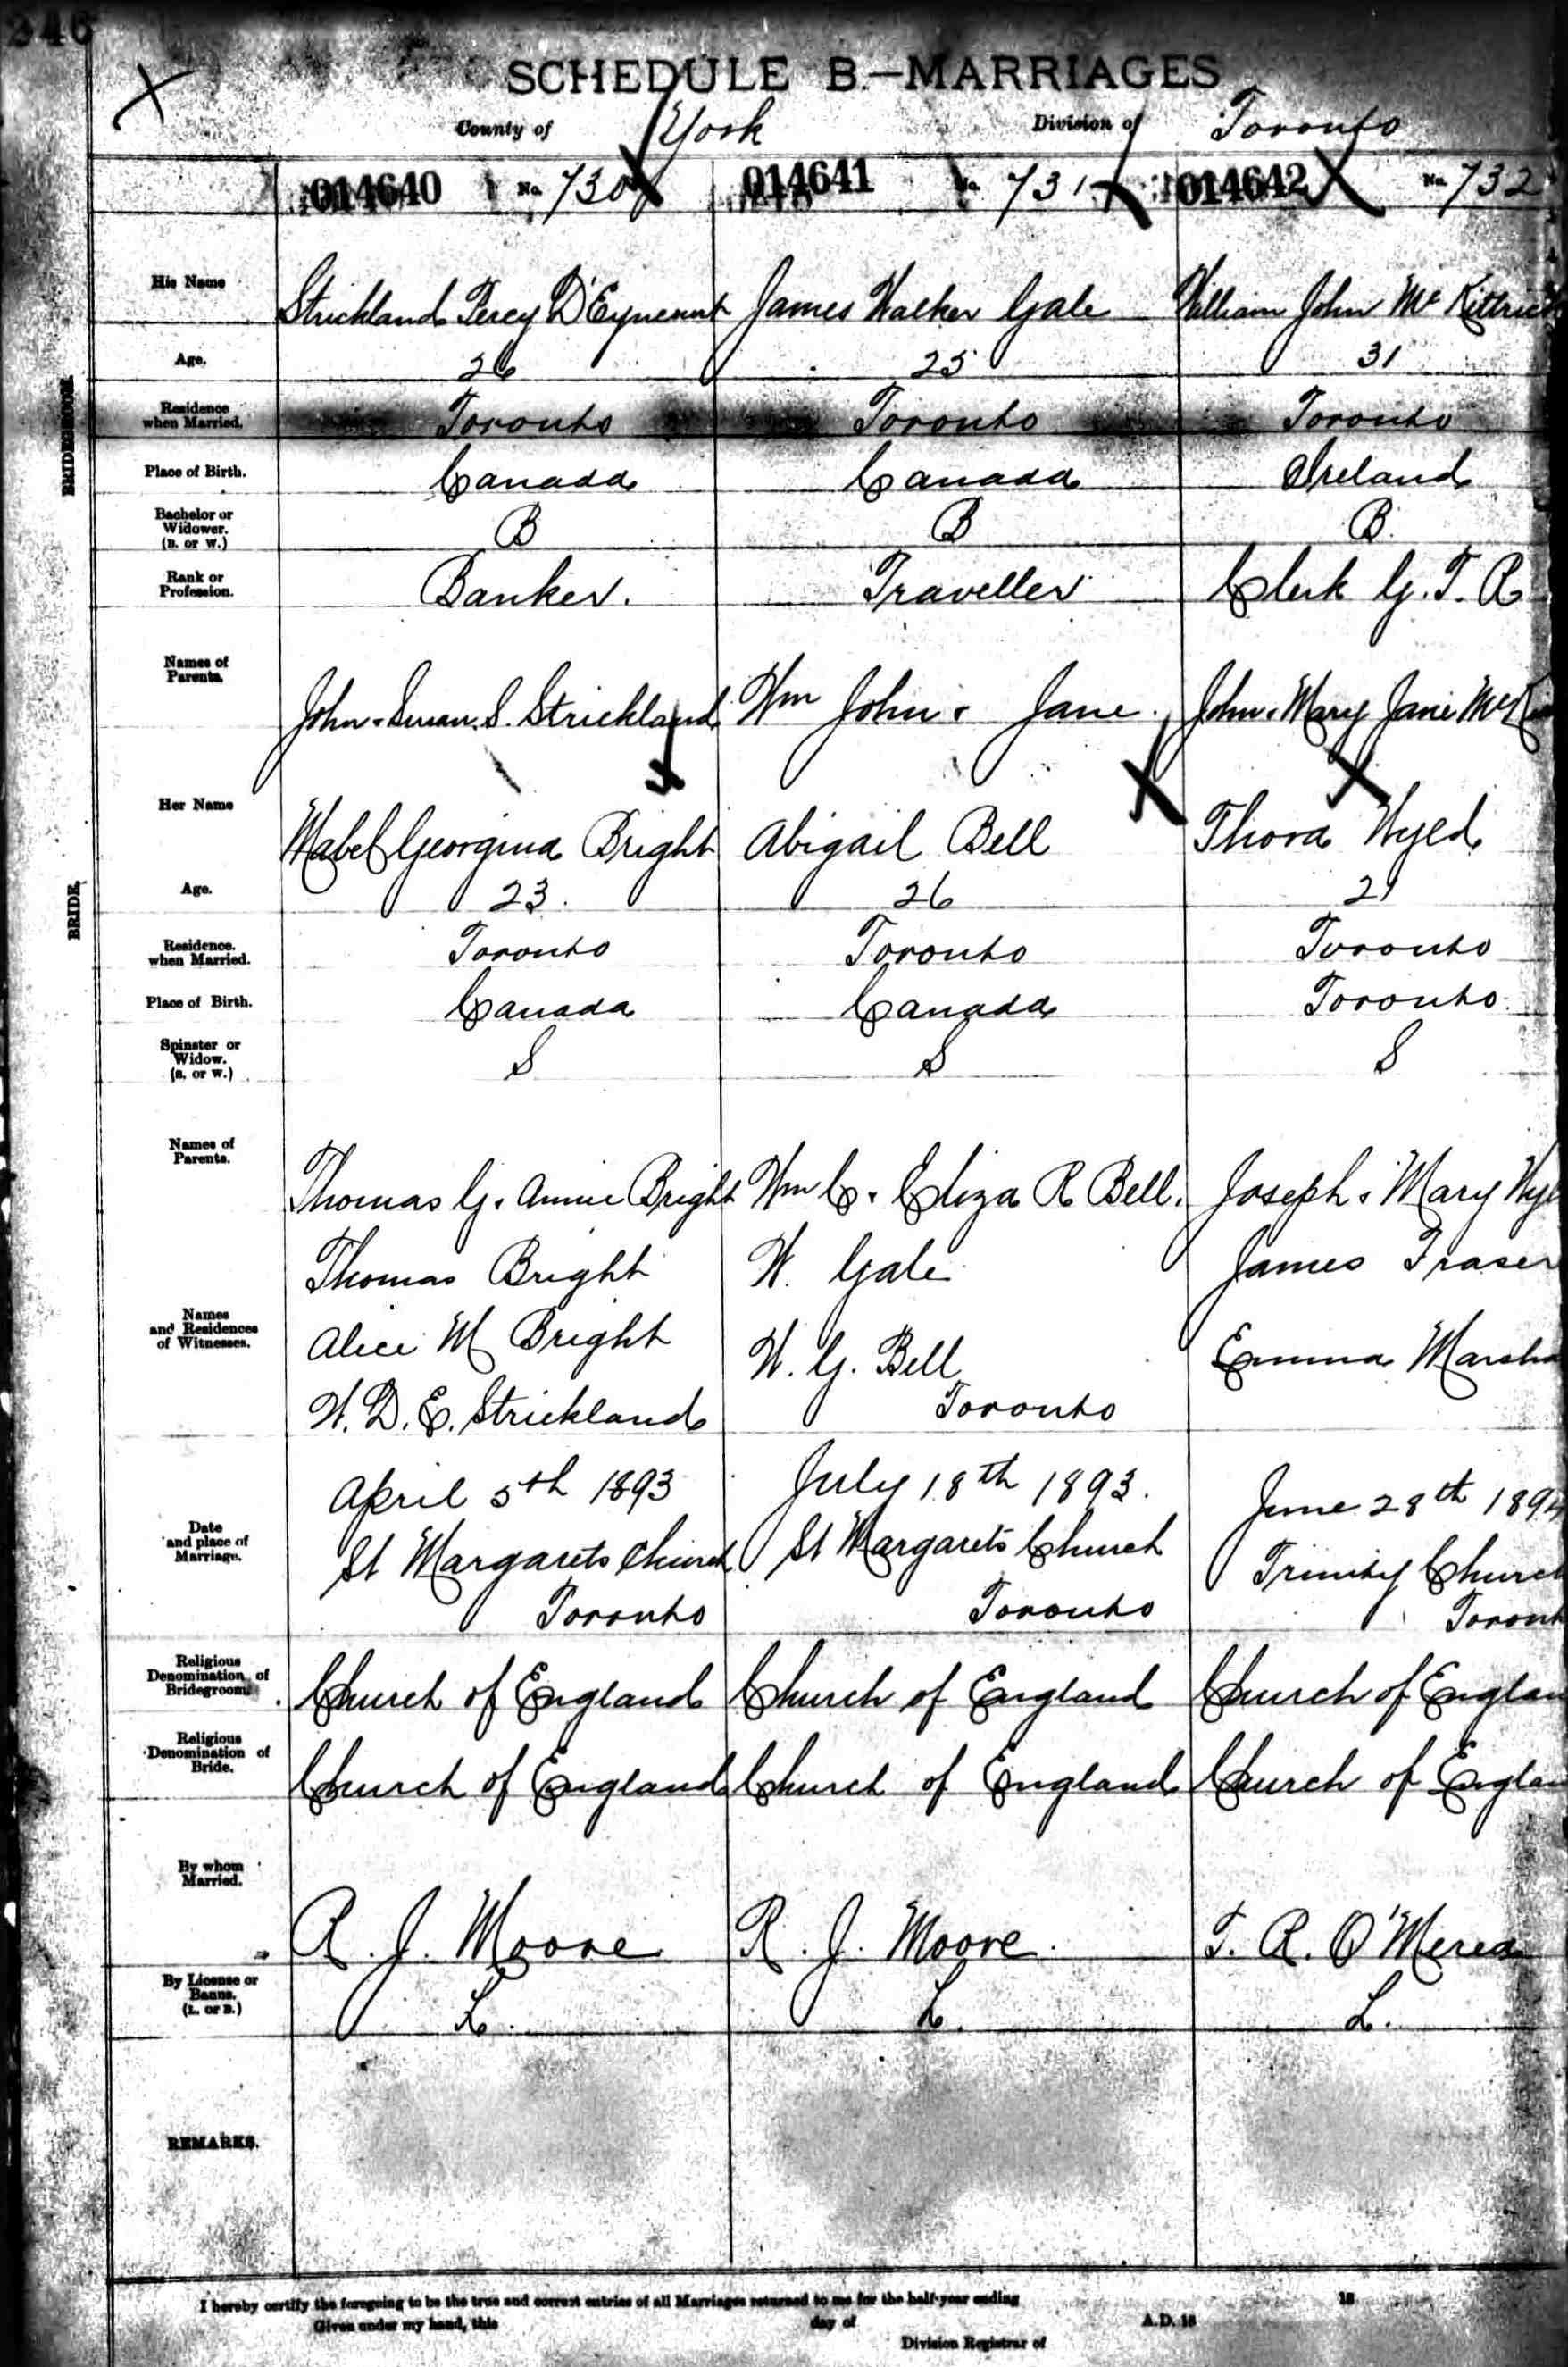 246
SCHEDULE B.—MARRIAGES
County of York Division of Toronto
014640 No. 730 014641 No. 731 014642 No. 732
BRIDEGROOM.
His Name Strickland Percy D'Eyncourt James Walker Gale William John McKittrick
Age. 26 25 31
Residence when Married. Toronto Toronto Toronto
Place of Birth. Canada Canada Ireland
Bachelor or Widower. (B. or W.) B B B.
Rank or Profession. Banker. Traveller Clerk G. T. R
Names of Parents. John & Susan S. Strickland Wm John & Jane John & Mary Jane
BRIDE.
Her Name Mabel Georgina Bright Abigail Bell Thora Wyld
Age. 23. 26 21
Residence. when Married. Toronto Toronto Toronto
Place of Birth. Canada Canada Toronto
Spinster or Widow. (S. or W.) S S S
Names of Parents. Thomas G. & Annie Bright Wm C. & Eliza R Bell. Joseph & Mary
Names and Residences of Witnesses.
Thomas Bright W. Gale James Fraser
Alice M Bright W. G. Bell Emma
W. D. E. Strickland Toronto
Date and place of Marriage.
April 5th 1893 July 18th 1893. June 28th
St Margarets Church St Margarets Church Trinity Church
Toronto Toronto Toronto
Religious Denomination of Bridegroom. Church of England Church of England Church of England
Religious Denomination of Bride. Church of England Church of England Church of England
By whom Married. R. J. Moore R. J. Moore. T. R. O'Meara
By License or Banns. (L. or B.) L. L. L.
REMARKS.
I hereby certify the foregoing to be the true and correct entries of all Marriages returned to me for the half-year ending 18
Given under my hand, this day of A.D. 18
Division Registrar of